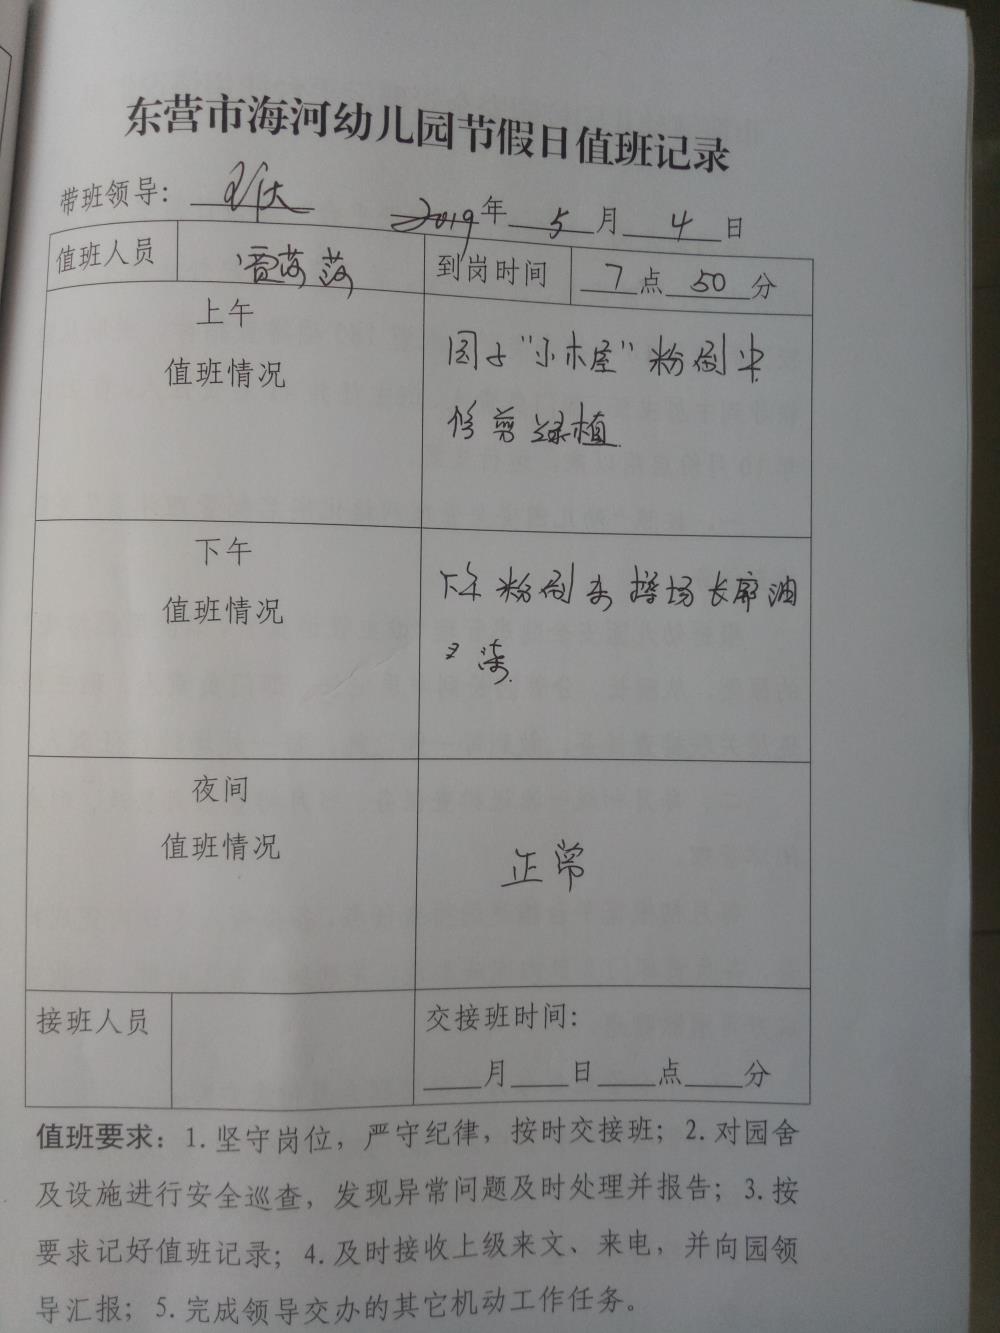 东营市海河幼儿园节假日值班记录
带班领导： 2019年 5 月 4 日
值班人员 到岗时间 7 点 50 分
上午
值班情况
园子“小木屋”粉刷中
修剪绿植.
下午
值班情况
下午粉刷 操场长廊油
漆.
夜间
值班情况
正常
接班人员
交接班时间：
____月____日____点____分
值班要求：1. 坚守岗位，严守纪律，按时交接班；2. 对园舍
及设施进行安全巡查，发现异常问题及时处理并报告；3. 按
要求记好值班记录；4. 及时接收上级来文、来电，并向园领
导汇报；5. 完成领导交办的其它机动工作任务。